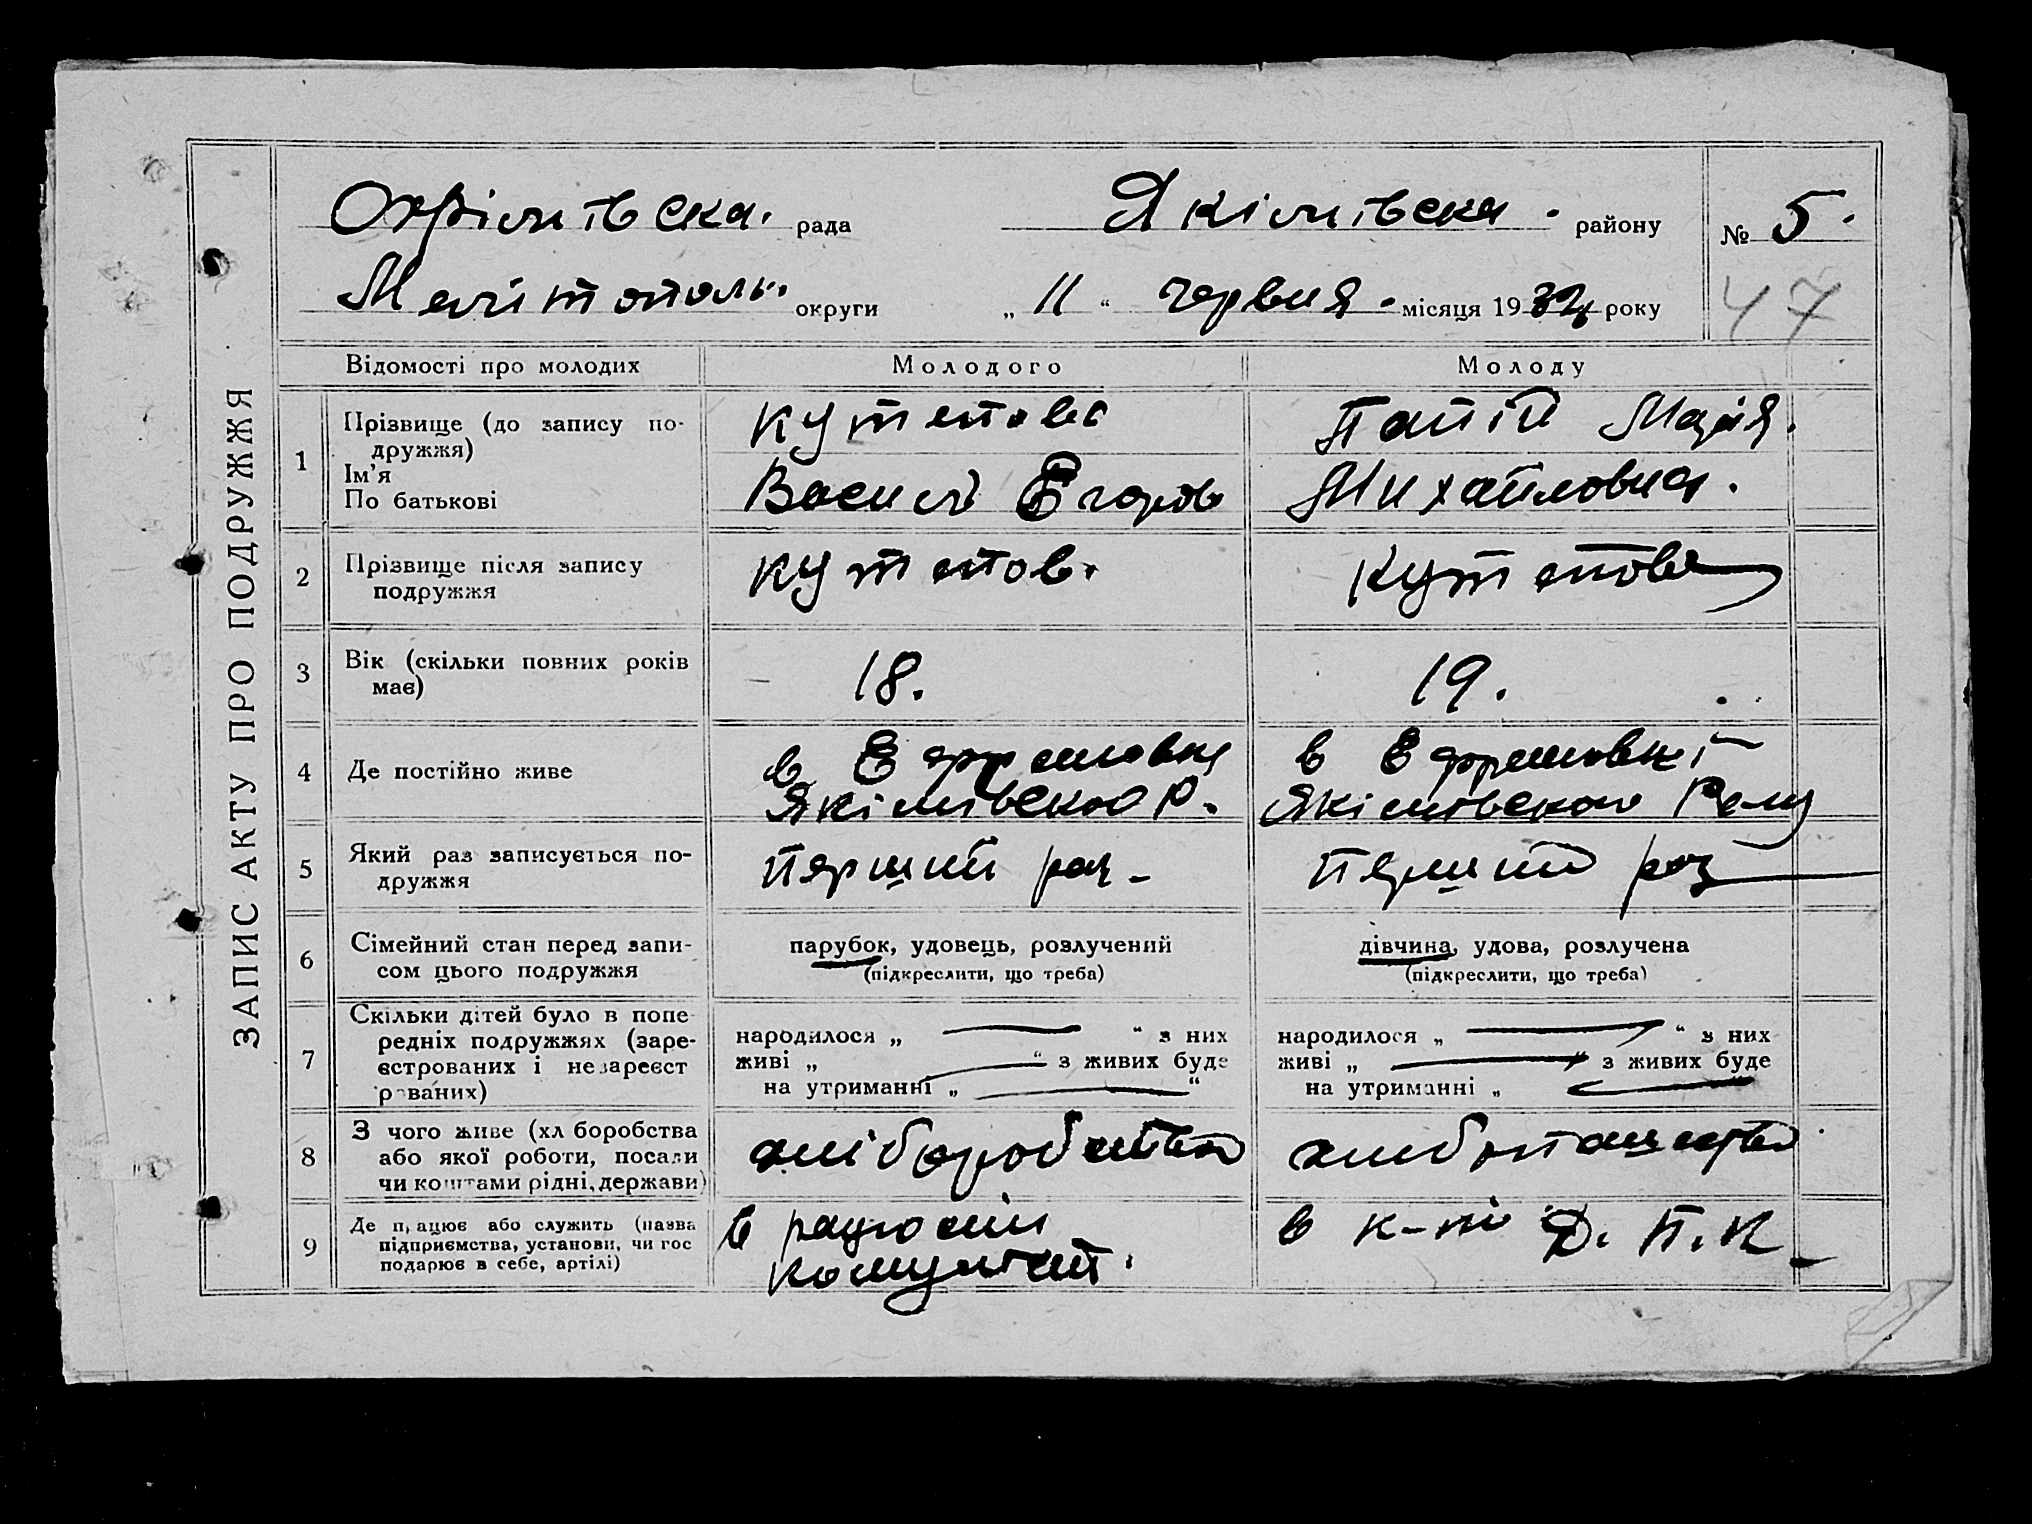 ЗАПИС АКТУ ПРО ПОДРУЖЖЯ
Охрімівска. рада Якімівска. району № 5.
Мелітополь. округи „ 11 “ червня. місяця 1932 року 47
Відомості про молодих Молодого Молоду
1 Прізвище (до запису по-
дружжя)
Ім'я
По батькові
Кутепова
Василь Егоров
Папій Марія.
Михайловна.
2 Прізвище після запису
подружжя
Кутепов.
Кутепова
3 Вік (скільки повних років
має)
18.
19.
4 Де постійно живе
в Ефремовки
Якімівскою Р.
в Ефремовкі
Якімовскою
5 Який раз записується по-
дружжя
Перший раз -
Перший раз
6 Сімейний стан перед запи-
сом цього подружжя
парубок, удовець, розлучений
(підкреслити, що треба)
дівчина, удова, розлучена
(підкреслити, що треба)
7 Скільки дітей було в попе-
редніх подружжях (заре-
єстрованих і незареєст
рованих)
народилося „ — “ з них
живі „ — “ з живих буде
на утриманні „ — “
народилося „ — “ з них
живі „ — “ з живих буде
на утриманні „ —
8 З чого живе (хліборобства
або якої роботи, посади
чи коштами рідні, держави)
хліборобство
9 Де працює або служить (назва
підприємства, установи, чи гос
подарює в себе, артілі)
в
в к-ні Д. П. К